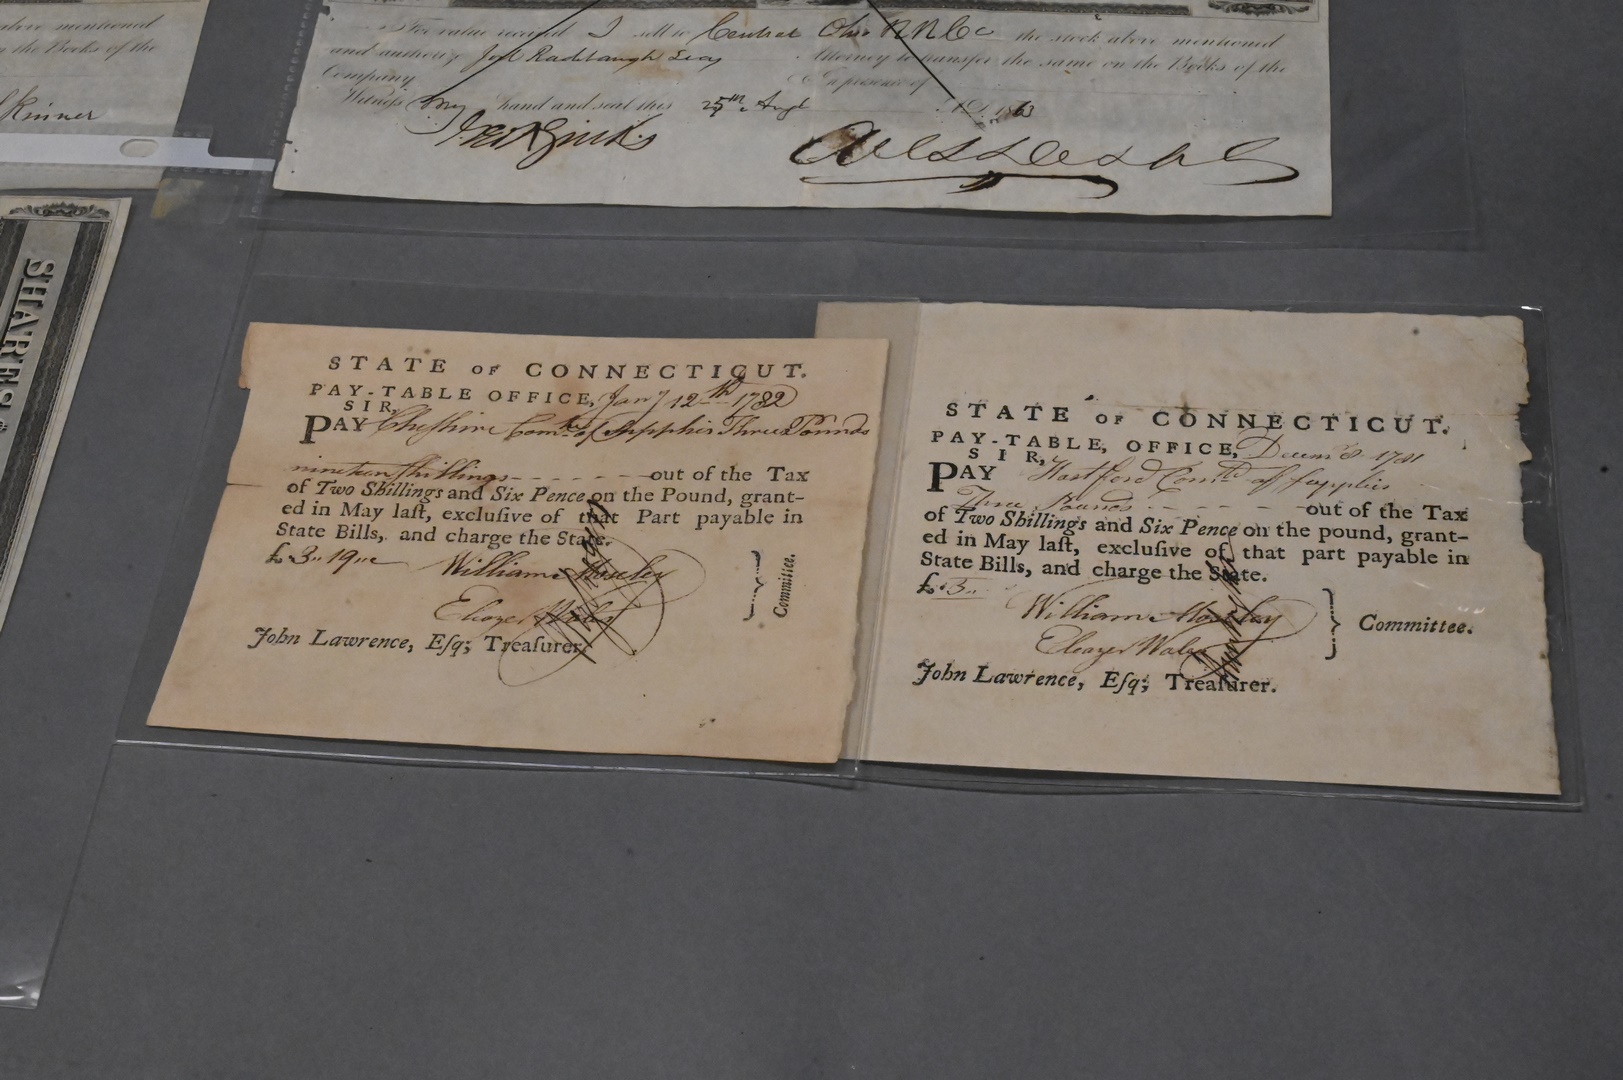 above mentioned
the Books of the
Skinner
SHARES
For value received I sell to Central Ohio RR Co the stock above mentioned
and authorize Attorney to transfer the same on the Books of the
Company. In presence of
Witness my hand and seal this 25th Augt A.D. 1863
STATE OF CONNECTICUT.
PAY-TABLE OFFICE, Jany 12th 1782
SIR,
PAY Cheshire Comtee of Supplies Three Pounds
nineteen shillings out of the Tax
of Two Shillings and Six Pence on the Pound, grant-
ed in May laſt, excluſive of that Part payable in
State Bills, and charge the State.
£3..19..
William Moseley
Eleazer Wales
Committee.
John Lawrence, Eſq; Treaſurer.
STATE OF CONNECTICUT.
PAY-TABLE, OFFICE, Decem 8 1781
SIR,
PAY Hartford Comtee of Supplies
Three Pounds out of the Tax
of Two Shillings and Six Pence on the pound, grant-
ed in May laſt, excluſive of that part payable in
State Bills, and charge the State.
£3..
William Moseley
Eleazer Wales
Committee.
John Lawrence, Eſq; Treaſurer.